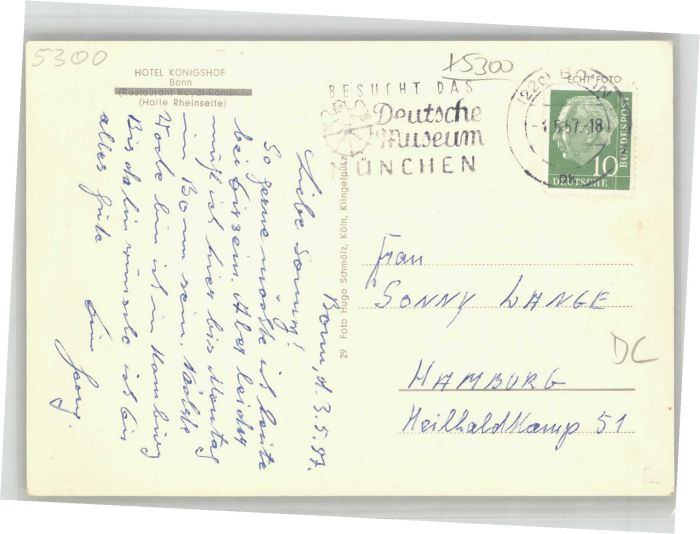 5300
HOTEL KÖNIGSHOF
Bonn
(Restaurant Royal-Rond
(Halle Rheinseite)
+5300
ECHT FOTO
BESUCHT DAS
Deutsche
Museum
MÜNCHEN
(22c) BONN
-18
10
DEUTSCHE
BUNDESPOST
29 Foto Hugo Schmölz, Köln, Klingelpütz
Bonn, d. 3.5.57.
Liebe Sonny!
So gerne möchte ich heute
bei Dir sein. Aber leider
muß ich hier bis Montag
in Bonn sein. Nächste
Woche bin ich in Hamburg
Bis dahin wünsche ich Dir
alles Gute
Dein
Georg.
Frau
SONNY LANGE
HAMBURG
Heilholdtkamp 51
DC